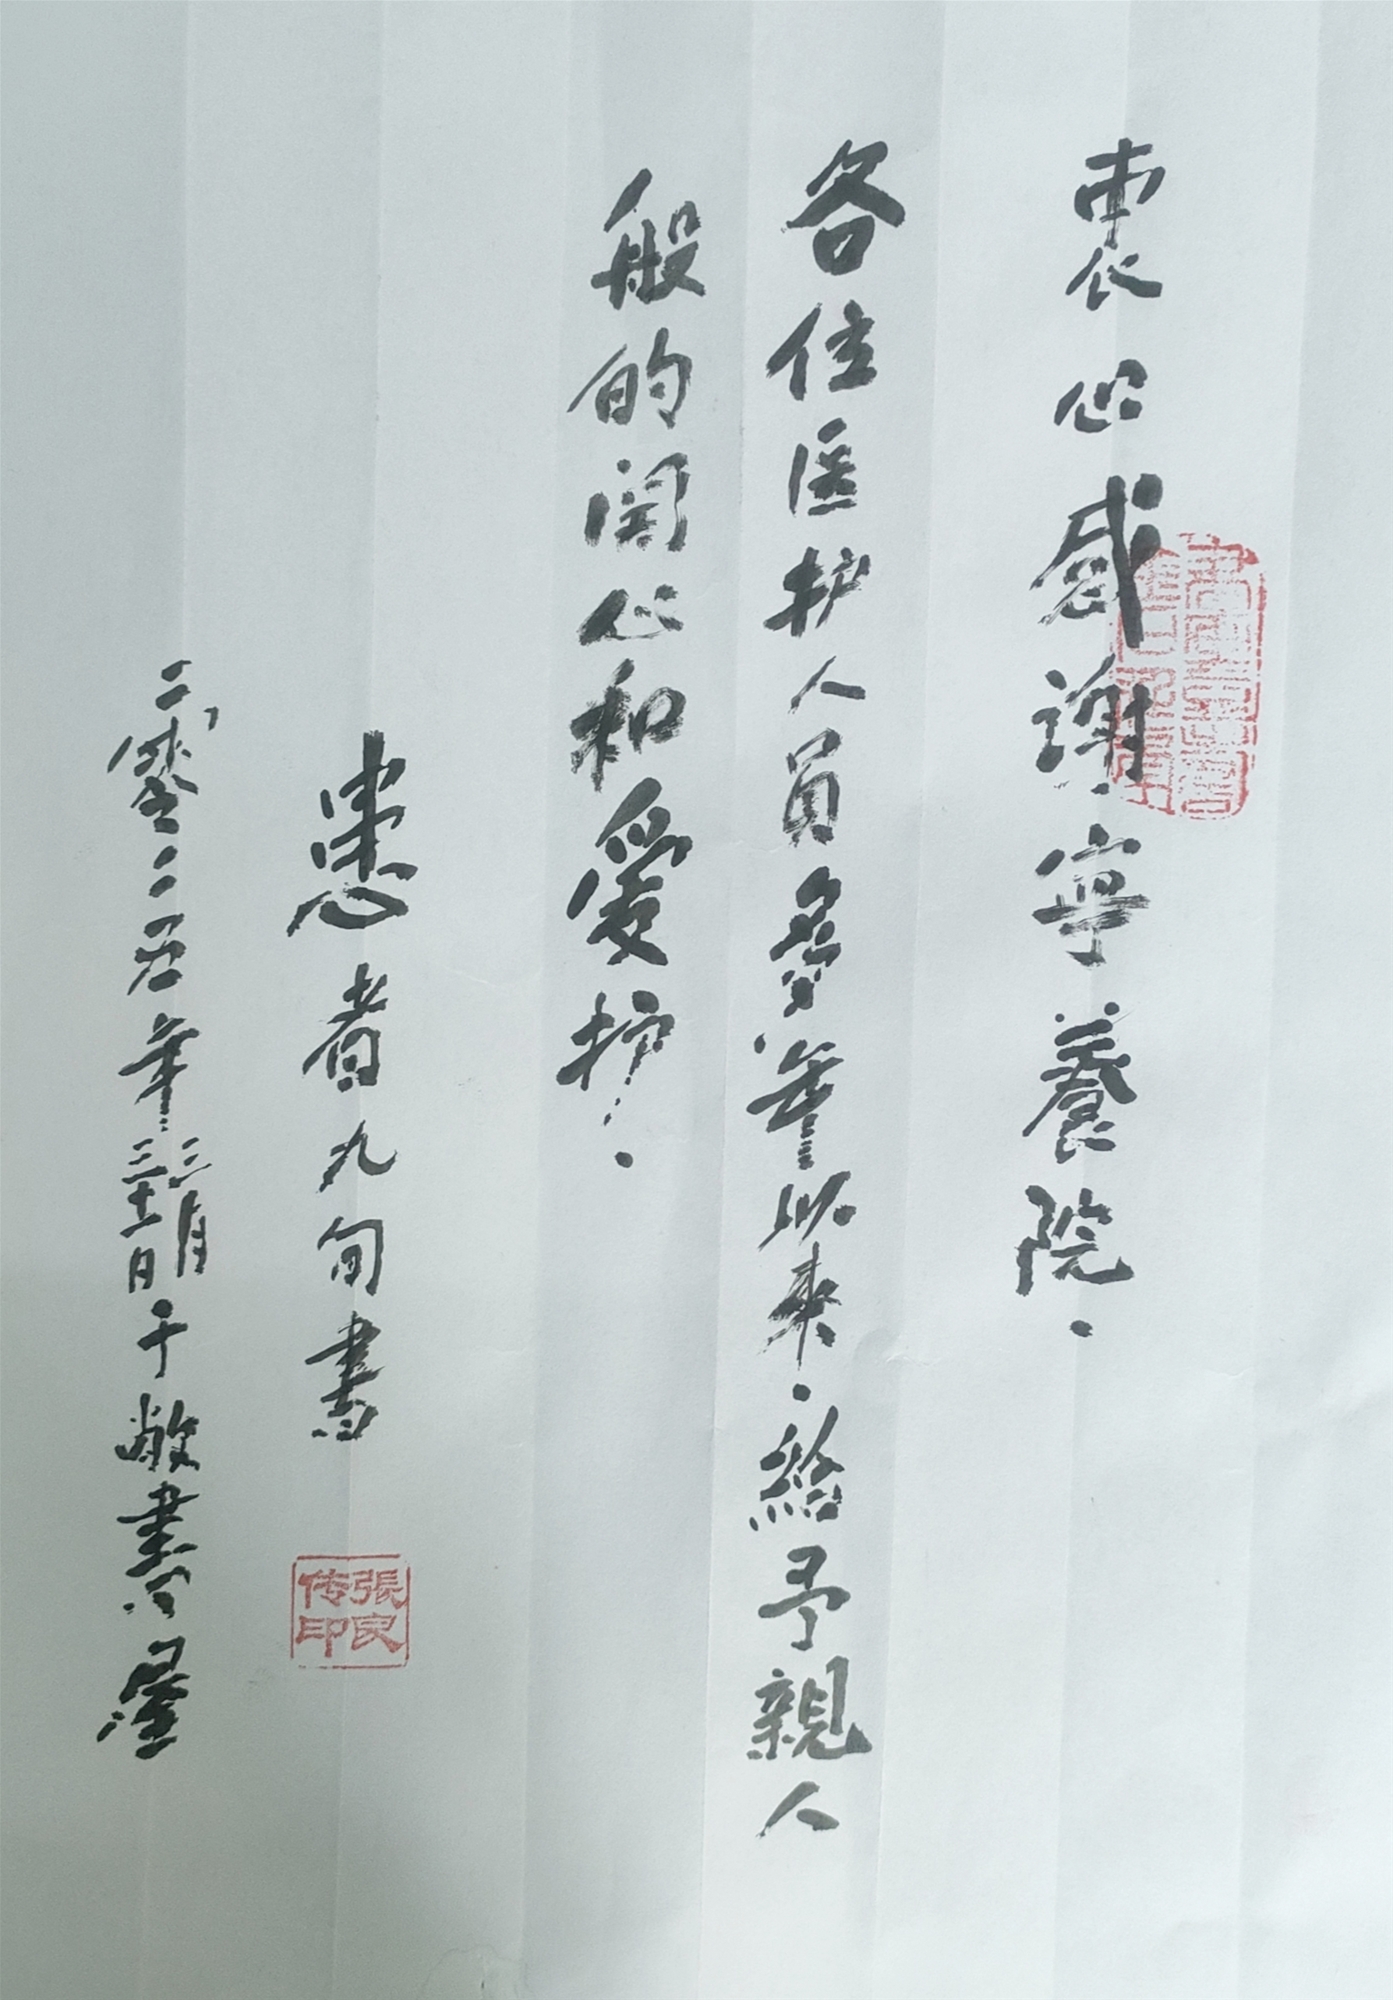 衷心感謝寧養院.
各位医护人員多年以来.給予親人
般的関心和愛护.
患者九旬書
張良
传印
二零二五年三月
三十一日于敝書屋